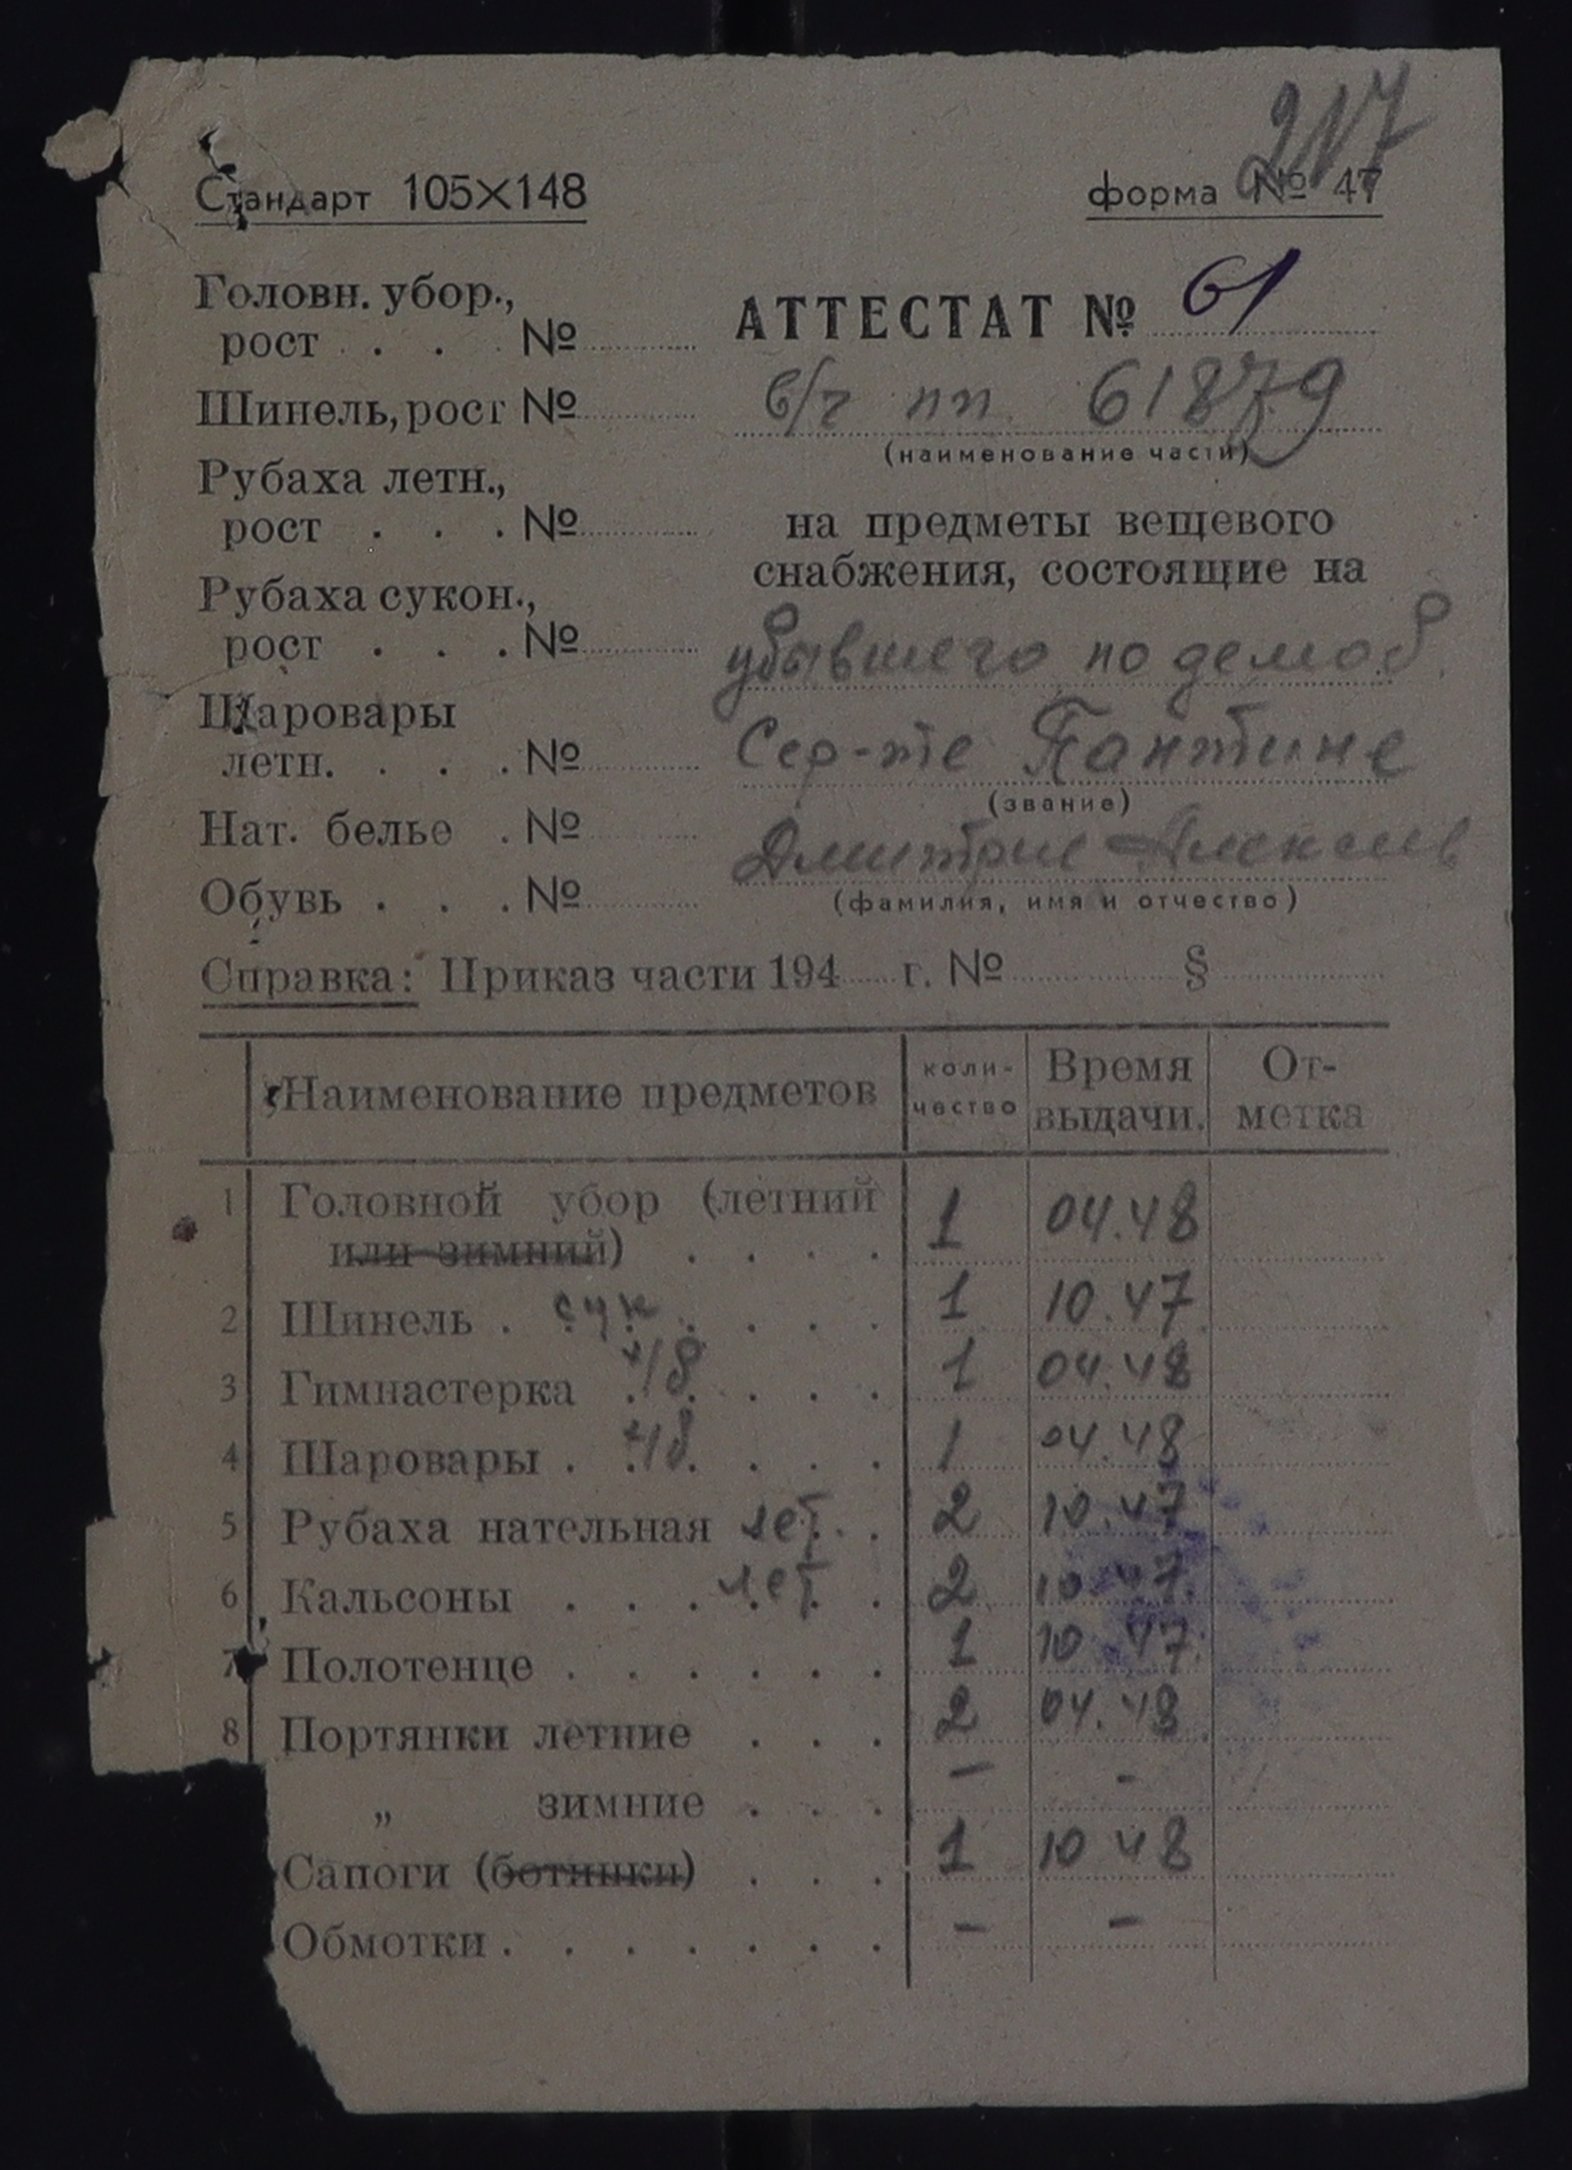 217
Стандарт 105×148
форма № 47
Головн. убор.,
рост . . . №
Шинель, рост №
Рубаха летн.,
рост . . . №
Рубаха сукон.,
рост . . . №
Шаровары
летн. . . . №
Нат. белье . №
Обувь . . . №
АТТЕСТАТ № 61
в/ч пп 61879
(наименование части)
на предметы вещевого
снабжения, состоящие на
убывшего по демоб.
Сер-те Пантине
(звание)
Дмитрие Алексеев
(фамилия, имя и отчество)
Справка: Приказ части 194 г. № §
Наименование предметов количество Время выдачи. Отметка
1 Головной убор (летний
или зимний) . . . . 1 04.48
2 Шинель . сук . . . . 1 10.47
3 Гимнастерка х/б . . . 1 04.48
4 Шаровары . х/б . . . 1 04.48
5 Рубаха нательная лет. . 2 10.47
6 Кальсоны . . . лет . 2 10.47.
7 Полотенце . . . . . . 1 10.47.
8 Портянки летние . . . 2 04.48
„ зимние . . . – -
Сапоги (ботинки) . . . 1 10 48
Обмотки . . . . . . . – –